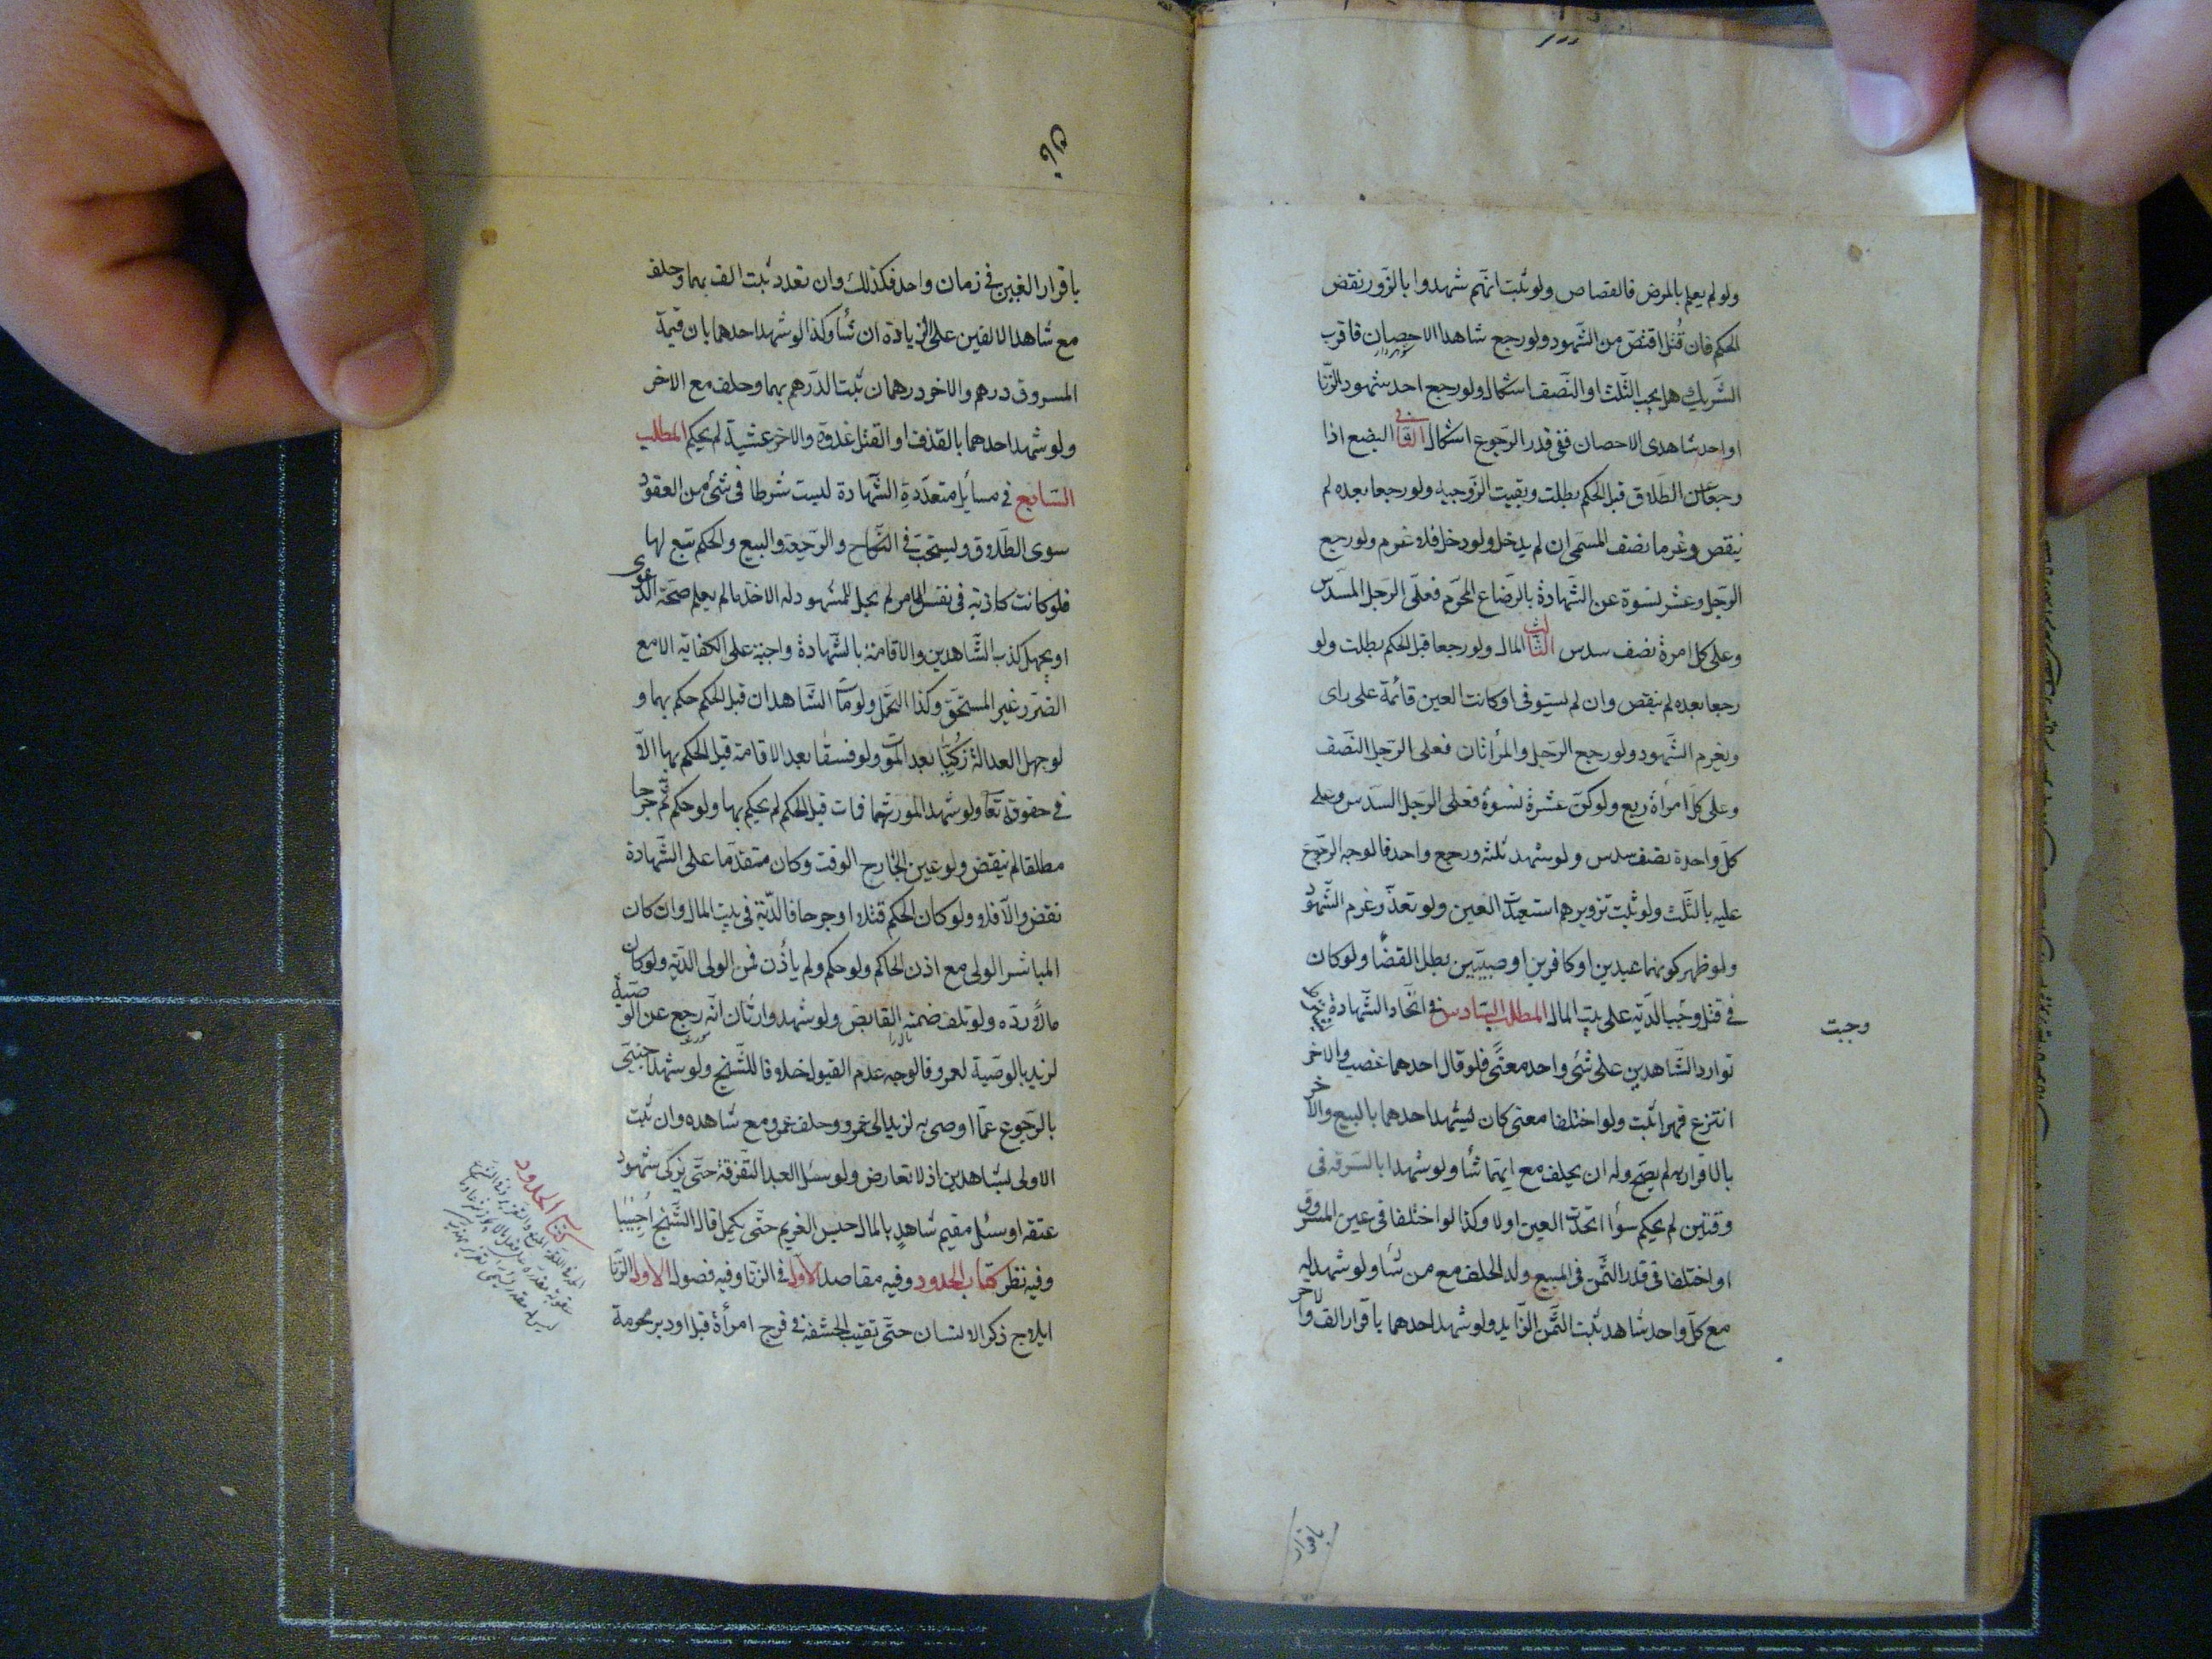 ولو لم يعلم بالمرض فالقصاص ولو ثبت انهم شهدوا بالزور نقض
الحكم فان قُتل اقتص من الشهود ولو رجع شاهدا الاحصان فاقرب
التشريك هل يجب الثلث او النصف اشكال ولو رجع احد شهود الزنا
او احد شاهدى الاحصان ففى قدر الرجوع اشكال الثانى البضع اذا
رجعا عن الطلاق قبل الحكم بطلت وبقيت الزوجية ولو رجعا بعده لم
ينقض وغرما نصف المسمى ان لم يدخل ولو دخل فلا غرم ولو رجع
الرجل وعشر نسوة عن الشهادة بالرضاع المحرم فعلى الرجل السدس
وعلى كل امرة نصف سدس الثالث المال ولو رجعا قبل الحكم بطلت ولو
رجعا بعده لم ينقض وان لم يستوفى او كانت العين قائمة على راى
ويغرم الشهود ولو رجع الرجل والمرأتان فعلى الرجل النصف
وعلى كل امرأة ربع ولو كن عشرة نسوة فعلى الرجل السدس وعلى
كل واحدة نصف سدس ولو شهد ثلثه ورجع واحد فالوجه الرجوع
عليه بالثلث ولو ثبت تزويرهم استعيدت العين ولو تعذر غرم الشهود
ولو ظهر كونهما عبدين او كافرين او صبيين بطل القضا ولو كان
فى قتل وجب الدية على بيت المال المطلب السادس فى اتحاد الشهادة
وجبت
توارد الشاهدين على شئ واحد معنًى فلو قال احدهما غصب والاخر
انتزع قهرا ثبت ولو اختلفا معنى كان يشهد احدهما بالبيع والاخر
بالاقرار به لم يصح وله ان يحلف مع ايهما شا ولو شهدا بالسرقه فى
وقتين لم يحكم سوأ اتحدت العين اولا وكذا لو اختلفا فى عين المسروق
او اختلفا فى قدر الثمن فى المبيع وله الحلف مع من شا ولو شهد له
مع كل واحد شاهد ثبت الثمن الزايد ولو شهد احدهما باقرار الف والاخر
باقرار
باقرار الفين فى زمان واحد فكذلك وان تعدد ثبت الف بهما وحلف
مع شاهد الالفين على الزيادة ان شا وكذا لو شهد احدهما بان قيمة
المسروق درهم والاخر درهمان ثبت الدرهم بهما وحلف مع الاخر
ولو شهد احدهما بالقذف او القتل غدوة والاخر عشية لم يحكم المطلب
السابع فى مسايل متعددة الشهادة ليست شرطا فى شئ من العقود
سوى الطلاق ويستحب فى النكاح والرجعة والبيع والحكم تبع لها
فلو كانت كاذبه فى نفس الامر لم يحل للمشهود له الاخذ ما لم يعلم صحة الدعوى
او يجهل كذب الشاهدين والاقامة بالشهادة واجبة على الكفاية الا مع
الضرر غير المستحق وكذا التحمل ولو مات الشاهدان قبل الحكم حكم بهما و
لو جهل العدالة زكيّا بعد الموت ولو فسقا بعد الاقامة قبل الحكم بها الا
فى حقوقه تعا ولو شهد المورثهما فمات قبل الحكم لم يحكم بها ولو حكم ثم جرحا
مطلقا لم ينقض ولو عين الجارح الوقت وكان متقدما على الشهادة
نقض والا فلا ولو كان الحكم قتلا او جرحا فالدية فى بيت المال وان كان
المباشر الولى مع اذن الحاكم ولو حكم ولم يأذن فمن الولى الدية ولو كان
مالا رده ولو تلف ضمنه القابض ولو شهد وارثان انه رجع عن الوصية
لزيد بالوصية لعمرو فالوجه عدم القبول خلافا للشيخ ولو شهد اجنبى
بالرجوع عما اوصى به لزيد الى عمرو وحلف عمرو مع شاهده وان ثبت
الاولى بشاهدين اذ لا تعارض ولو سئل العبد التفرقة حتى يزكى شهود
عتقه او سئل مقيم شاهدٍ بالمال حبس الغريم حتى يكمل قال الشيخ اجيبا
وفيه نظر كتاب الحدود وفيه مقاصد الاول فى الزنا وفيه فصول الاول الزنا
ايلاج ذكر الانسان حتى تغيب الحشفة فى فرج امرأة قبل او دبر محرمة
كتاب الحدود